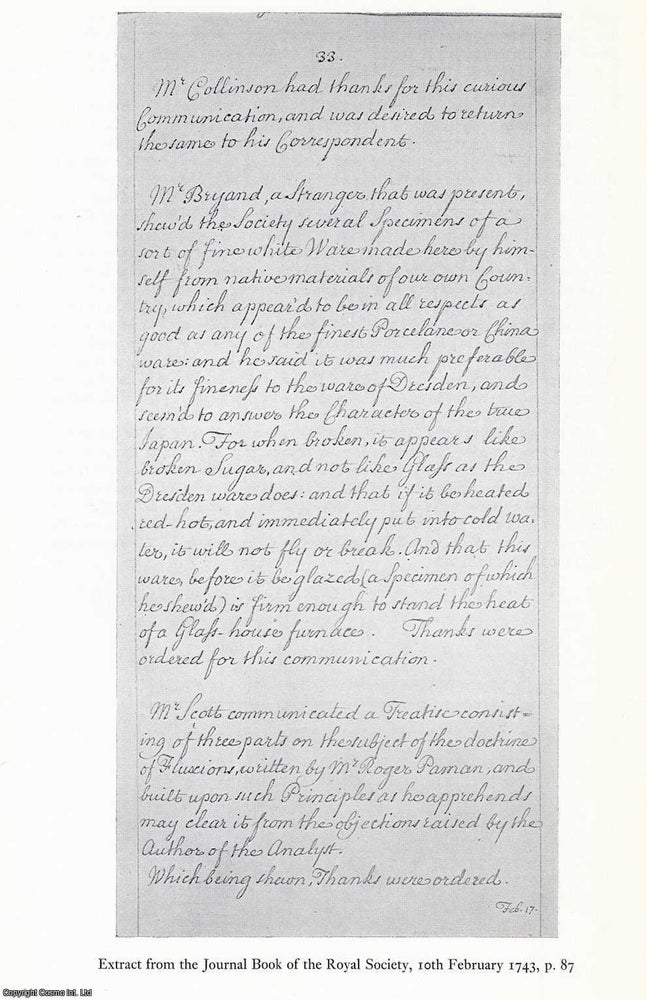 33.
Mr Collinson had thanks for this curious
Communication, and was desired to return
the same to his Correspondent.
Mr Bryand, a Stranger that was present,
shew'd the Society several Specimens of a
sort of fine white Ware made here by him-
self from native materials of our own Coun-
try, which appear'd to be in all respects as
good as any of the finest Porcelane or China
ware: and he said it was much preferable
for its fineness to the ware of Dresden, and
seem'd to answer the Character of the true
Japan. For when broken, it appears like
broken Sugar, and not like Glass as the
Dresden ware does: and that if it be heated
red-hot, and immediately put into cold wa-
ter, it will not fly or break. And that this
ware, before it be glazed (a Specimen of which
he shew'd) is firm enough to stand the heat
of a Glass-house furnace. Thanks were
ordered for this communication.
Mr Scott communicated a Treatise consist=
ing of three parts on the subject of the doctrine
of Fluxions, written by Mr Roger Paman, and
built upon such Principles as he apprehends
may clear it from the objections raised by the
Author of the Analyst.
Which being shewn, Thanks were ordered.
Feb. 17.
Extract from the Journal Book of the Royal Society, 10th February 1743, p. 87
Copyright Cosmo Int. Ltd